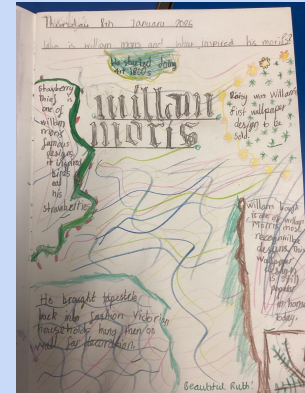 Thursday 8th January 2026
Who is william morris and what inspired his motifs?
He started doing
Art 1860s
willam
moris
strawberry
thief is
one of
willam
morris
famous
designs
it
birds
eat
his
strawberries
Daisy was William
first wallpaper
design to be
sold.
willam
is one of
morris most
recognisible
designs. This
wallpaper
is still
popular
in homes
today.
He brought tapestrie
back into fashion Victorian
households hung them on
wall for decoration.
Beautiful Ruth!